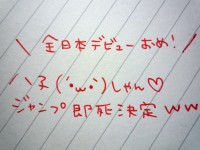 \ 全日本デビューおめ! /
\ ﾇ(´・ω・`)しゃん♡
ジャンプ即死決定ww